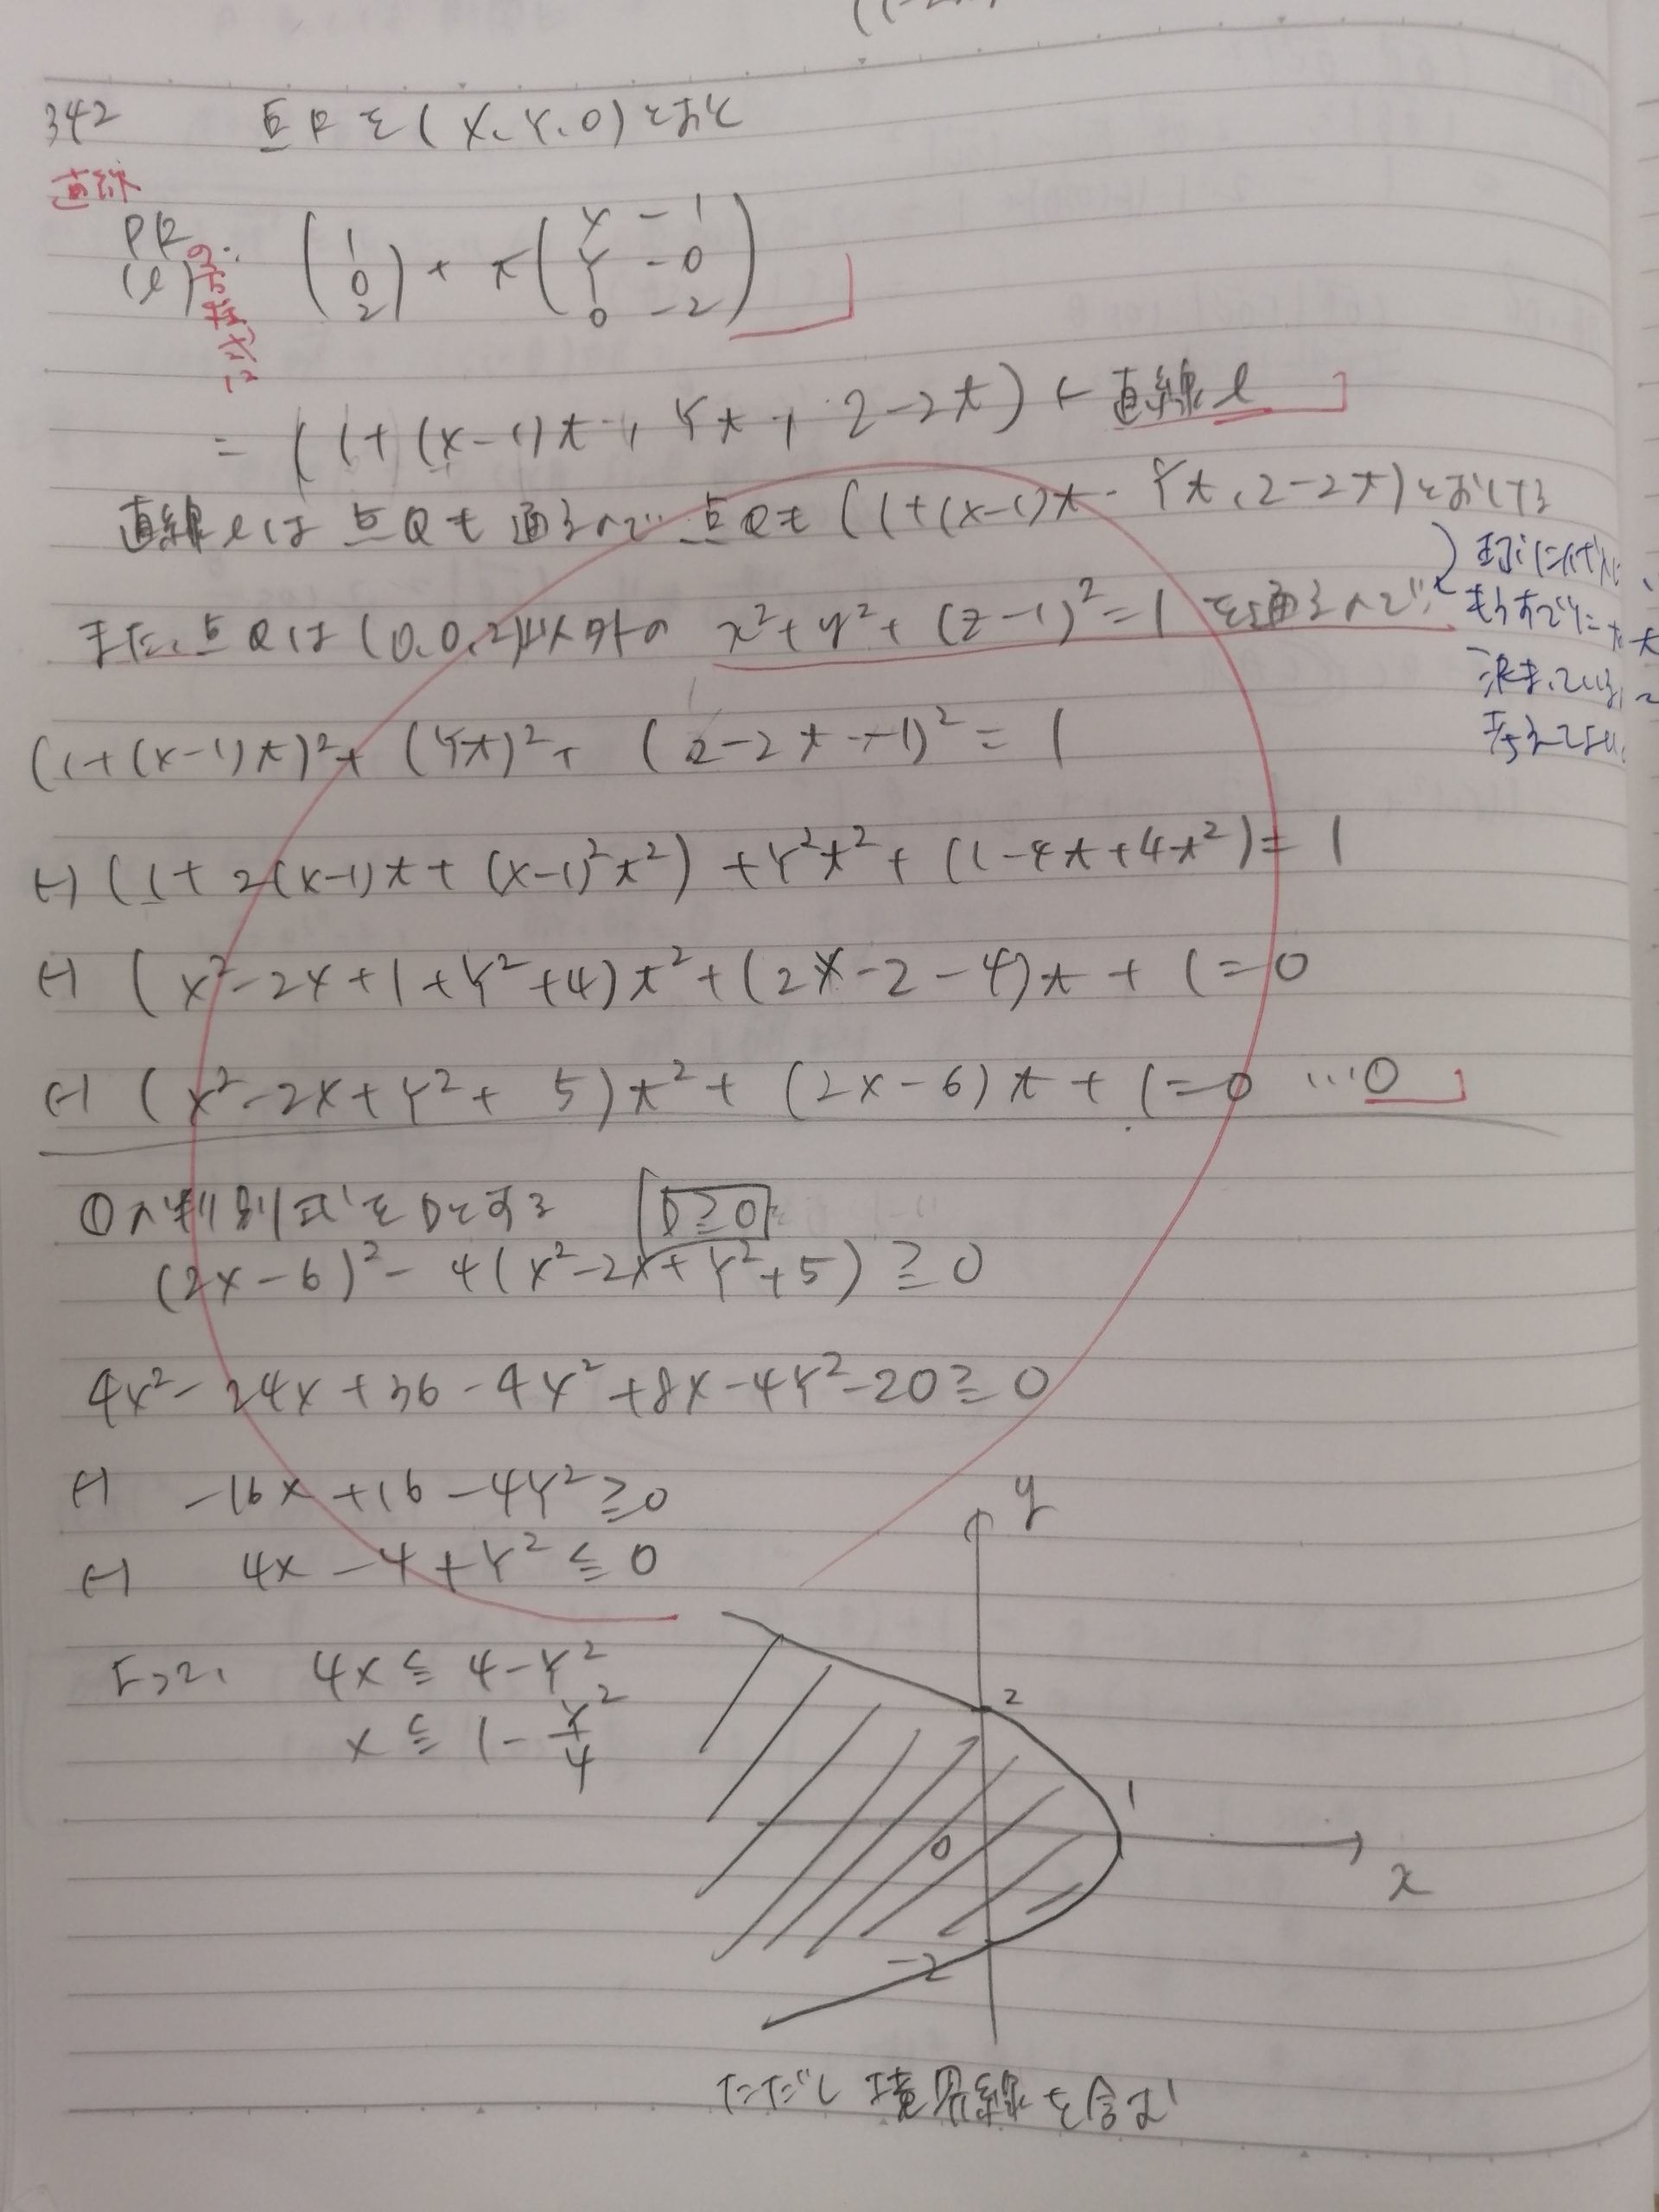 342 点Rを(X、Y、0)とおく
直線
PR
(l)
の方程式は
: (1 0 2) + t(X-1 Y-0 0-2)
= (1+(X-1)t, Yt, 2-2t) ← 直線l
直線lは点Qも通るので 点Qも(1+(X-1)t, Yt, 2-2t)とおける
また、点Qは(0,0,2)以外の x²+y²+(z-1)²=1 を通るので
(1+(X-1)t)²+(Yt)²+(2-2t-1)²=1
⇔ (1+2(X-1)t+(X-1)²t²)+Y²t²+(1-4t+4t²)=1
⇔ (X²-2X+1+Y²+4)t²+(2X-2-4)t+1=0
⇔ (X²-2X+Y²+5)t²+(2X-6)t+1=0 …①
①の判別式をDとする D≧0
(2X-6)²-4(X²-2X+Y²+5)≧0
4X²-24X+36-4X²+8X-4Y²-20≧0
⇔ -16X+16-4Y²≧0
⇔ 4X-4+Y²≦0
よって、 4X≦4-Y²
X≦1-Y²/4
y
2
1
0
x
-2
ただし境界線を含む